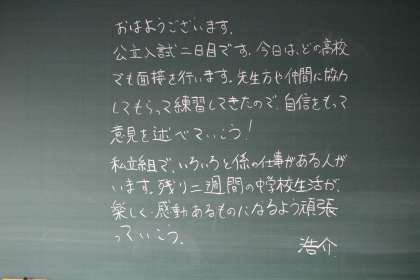 おはようございます.
公立入試二日目です.今日は、どの高校
でも面接を行います.先生方や仲間に協力
してもらって練習してきたので自信をもって
意見を述べていこう!
私立組で、いろいろと係の仕事がある人が
います.残り二週間の中学校生活が、
楽しく・感動あるものになるよう頑張
っていこう.
浩介